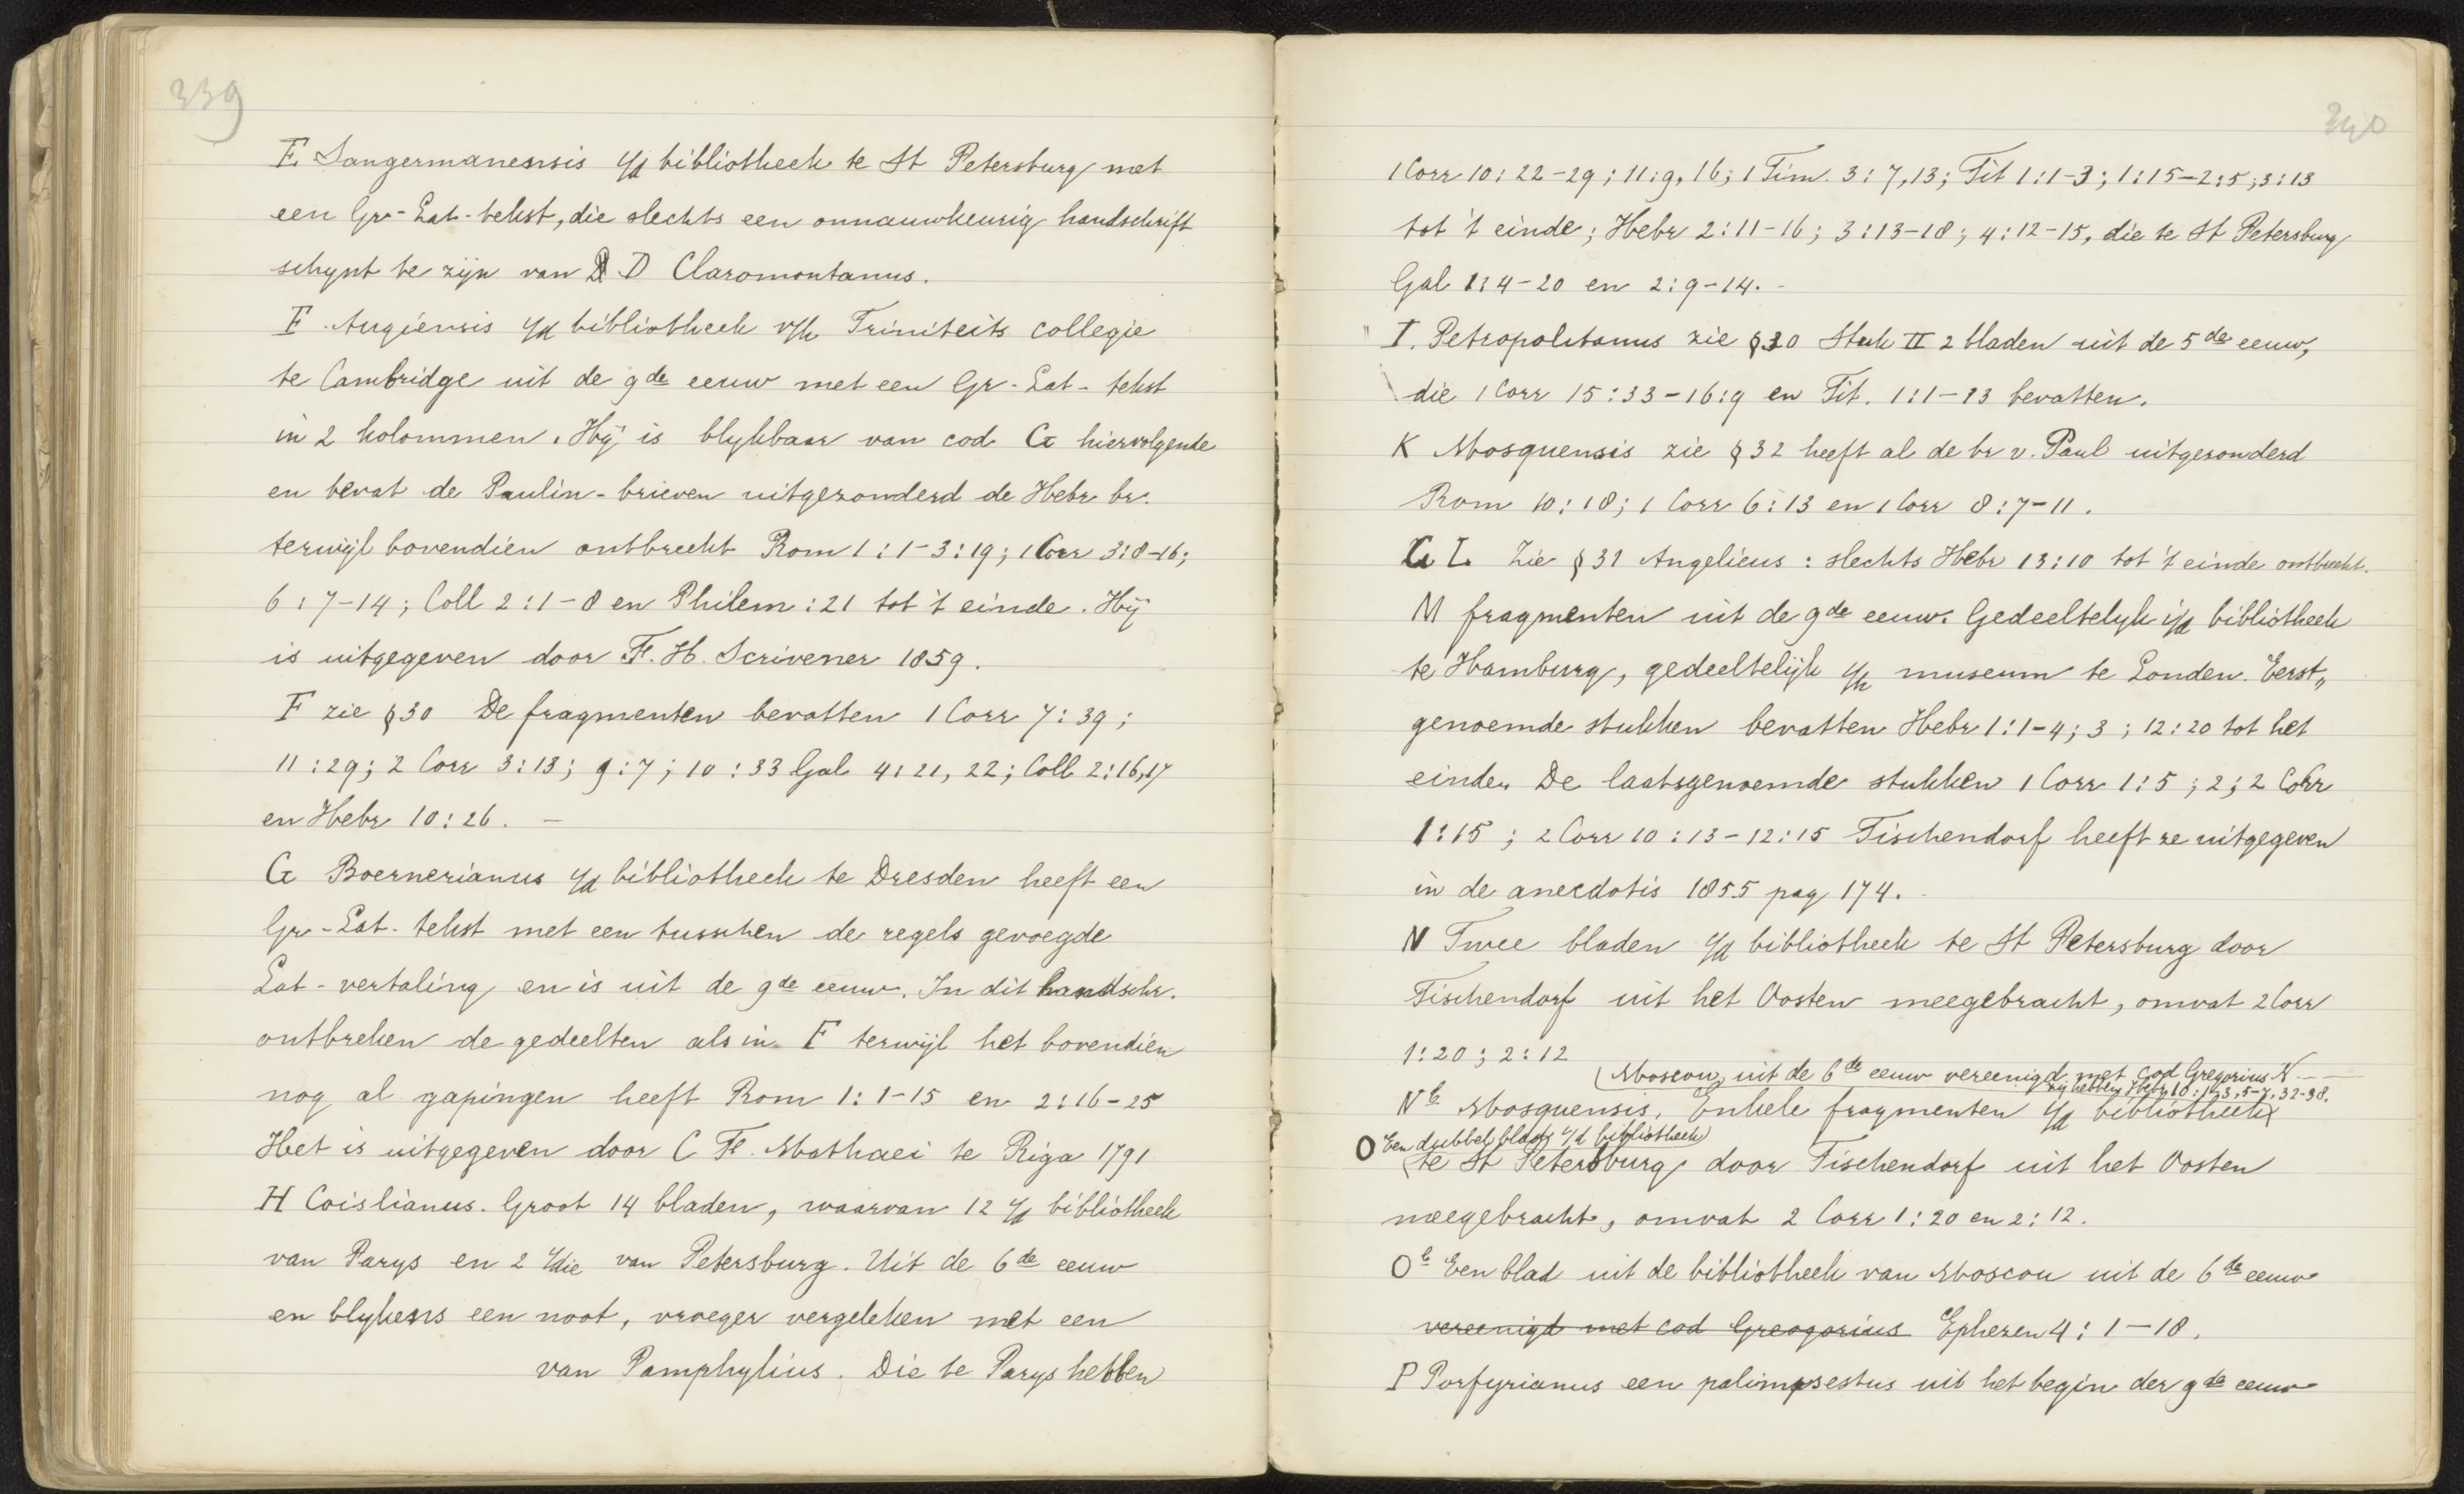 339
E. Sangermanensis i/d bibliotheek te St Petersburg met
een Gr-Lat-tekst, die slechts een onnauwkeurig handschrift
schynt te zijn van D Claromontanus.
F. Augiensis i/d bibliotheek v/h Triniteits collegie
te Cambridge uit de 9de eeuw met een Gr-Lat-tekst
in 2 kolommen. Hij is blykbaar van cod G hiervolgende
en bevat de Paulin-brieven uitgezonderd de Hebr br.
terwijl bovendien ontbreekt Rom 1:1-3:19; 1 Corr 3:8-16;
6:7-14; Coll 2:1-8 en Philem: 21 tot 't einde. Hij
is uitgegeven door F. H. Scrivener 1859.
F zie § 30 De fragmenten bevatten 1 Corr 7:39;
11:29; 2 Corr 3:13; 9:7; 10:33 Gal 4:21, 22; Coll 2:16,17
en Hebr 10:26. —
G Boernerianus i/d bibliotheek te Dresden heeft een
Gr-Lat-tekst met een tusschen de regels gevoegde
Lat-vertaling en is uit de 9de eeuw. In dit handschr.
ontbreken de gedeelten als in F terwijl het bovendien
nog al gapingen heeft Rom 1:1-15 en 2:16-25
Het is uitgegeven door C F. Mathaei te Riga 1791
H Coislianus. Groot 14 bladen, waarvan 12 i/d bibliotheek
van Parys en 2 i/die van Petersburg. Uit de 6de eeuw
en blykens een noot, vroeger vergeleken met een
van Pamphylius. Die te Parys hebben
340
1 Corr 10:22-29; 11:9, 16; 1 Tim. 3:7,13; Tit 1:1-3; 1:15-2:5; 3:13
tot 't einde; Hebr 2:11-16; 3:13-18; 4:12-15, die te St Petersburg
Gal 1:4-20 en 2:9-14. -
I. Petropolitanus zie § 30 Stuk II 2 bladen uit de 5de eeuw,
die 1 Corr 15:33-16:9 en Tit. 1:1-13 bevatten.
K Mosquensis zie § 32 heeft al de br v. Paul uitgezonderd
Rom 10:18; 1 Corr 6:13 en 1 Corr 8:7-11.
G L Zie § 31 Angelicus: slechts Hebr 13:10 tot 't einde ontbreekt.
M fragmenten uit de 9de eeuw. Gedeeltelyk i/d bibliotheek
te Hamburg, gedeeltelijk i/h museum te Londen. Eerst„
genoemde stukken bevatten Hebr 1:1-4; 3; 12:20 tot het
einde. De laatsgenoemde stukken 1 Corr 1:5; 2; 2 Corr
1:15; 2 Corr 10:13-12:15 Tischendorf heeft ze uitgegeven
in de anecdotis 1855 pag 174.
N Twee bladen i/d bibliotheek te St Petersburg door
Tischendorf uit het Oosten meegebracht, omvat 2 Corr
1:20; 2:12
(Moscou, uit de 6de eeuw vereenigd met cod Gregorius N. --
zij hebben Hebr 10:1-3, 5-7, 32-38.
Nb Mosquensis. Enkele fragmenten i/d bibliotheek
O Een dubbel blad i/d bibliotheek
te St Petersburg door Tischendorf uit het Oosten
meegebracht, omvat 2 Corr 1:20 en 2:12.
Ob Een blad uit de bibliotheek van Moscou uit de 6de eeuw
vereenigd met cod Greogorius Ephezen 4:1-18.
P Porfyrianus een palimpsestus uit het begin der 9de eeuw